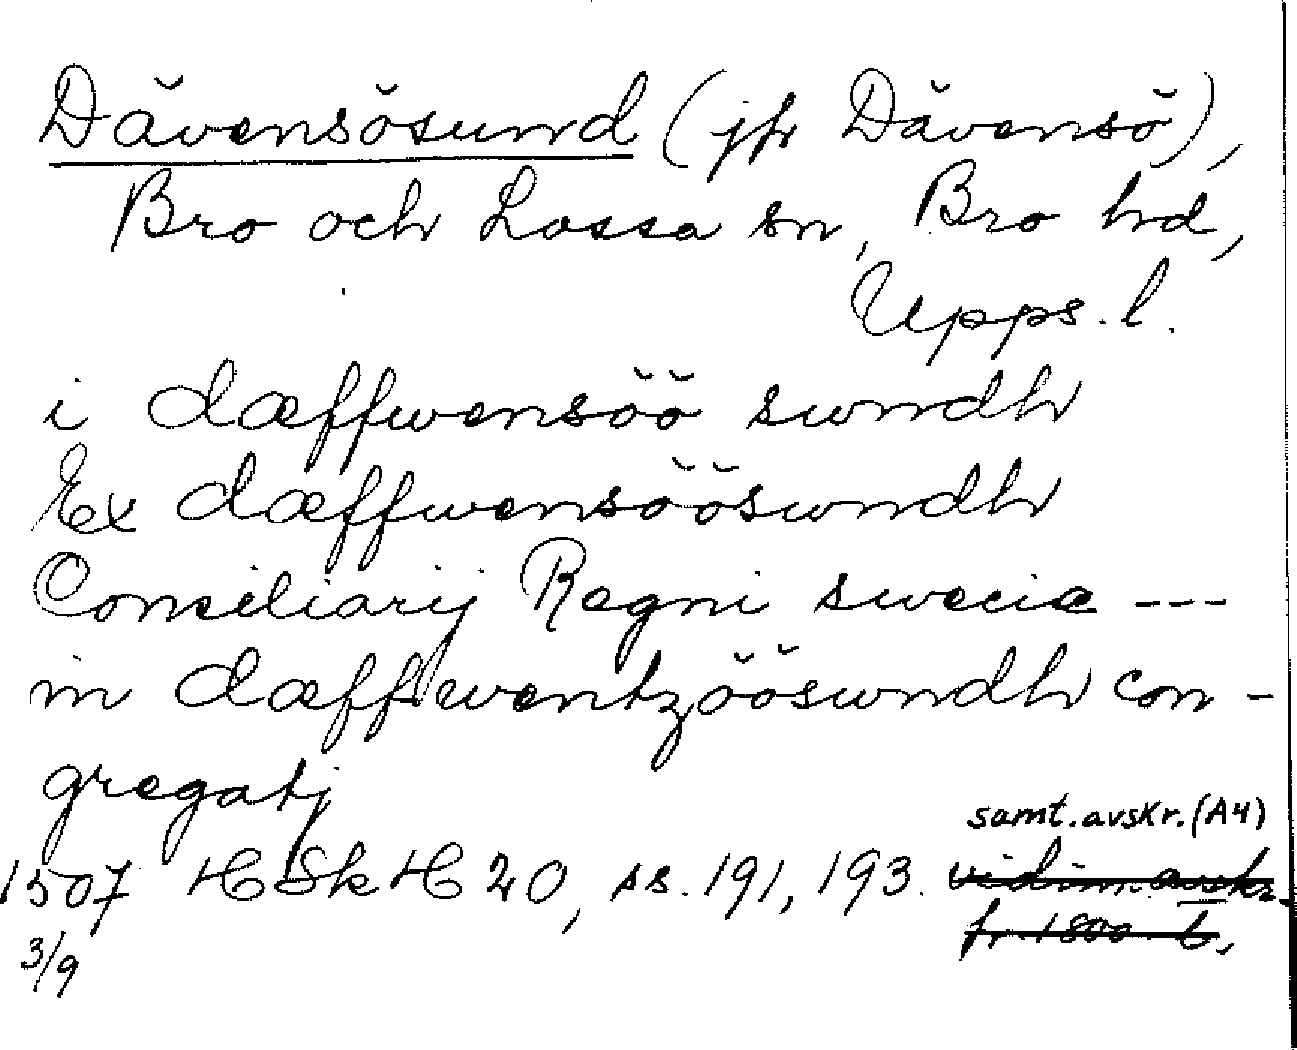 Dävensösund (jfr Dävensö),
Bro och Lossa sn, Bro hd,
Upps. l.
i dæffwensöö swndh
Ex dæffwensööswndh
Consiliarij Regni swecie ---
in dæffwentzööswndh con-
gregatj
samt. avskr. (A4)
1507 HSkH 20, ss. 191, 193. vidim. avskr.
fr. 1800-t.
3/9